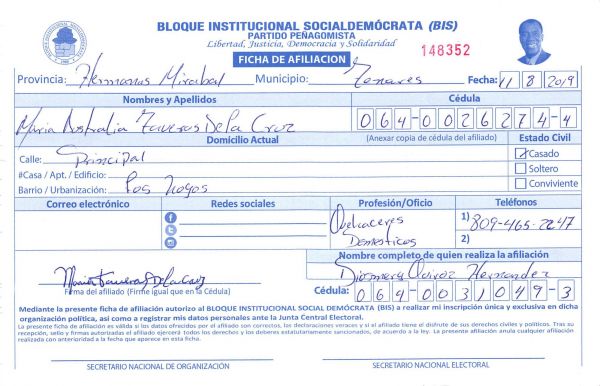 BLOQUE INSTITUCIONAL SOCIALDEMÓCRATA (BIS)
PARTIDO PEÑAGOMISTA
Libertad, Justicia, Democracia y Solidaridad
FICHA DE AFILIACION
148352
Provincia: Hermanas Mirabal Municipio: Tenares Fecha: 11 8 2019
Nombres y Apellidos Cédula
Maria Australia Taveras De la Cruz 064-0026274-4
Domicilio Actual (Anexar copia de cédula del afiliado) Estado Civil
Calle: Principal Casado
#Casa / Apt. / Edificio: Soltero
Barrio / Urbanización: Los Conviviente
Correo electrónico Redes sociales Profesión/Oficio Teléfonos
Quehaceres 1) 809-465-2247
Domesticos 2)
Nombre completo de quien realiza la afiliación
Quiroz Hernandez
Maria Taveras De la Cruz
Firma del afiliado (Firme igual que en la Cédula) Cédula: 064-0031049-3
Mediante la presente ficha de afiliación autorizo al BLOQUE INSTITUCIONAL SOCIAL DEMÓCRATA (BIS) a realizar mi inscripción única y exclusiva en dicha
organización política, así como a registrar mis datos personales ante la Junta Central Electoral.
La presente ficha de afiliación es válida si los datos ofrecidos por el afiliado son correctos, las declaraciones veraces y si al afiliado tiene el disfrute de sus derechos civiles y políticos. Tras su
recepción, sello y firmas autorizadas el afiliado ejercerá todos los derechos y los deberes estatutariamente sancionados, de acuerdo a la ley. La presente afiliación anula cualquier afiliación
realizada con anterioridad a la fecha que aparece en esta ficha.
SECRETARIO NACIONAL DE ORGANIZACIÓN SECRETARIO NACIONAL ELECTORAL